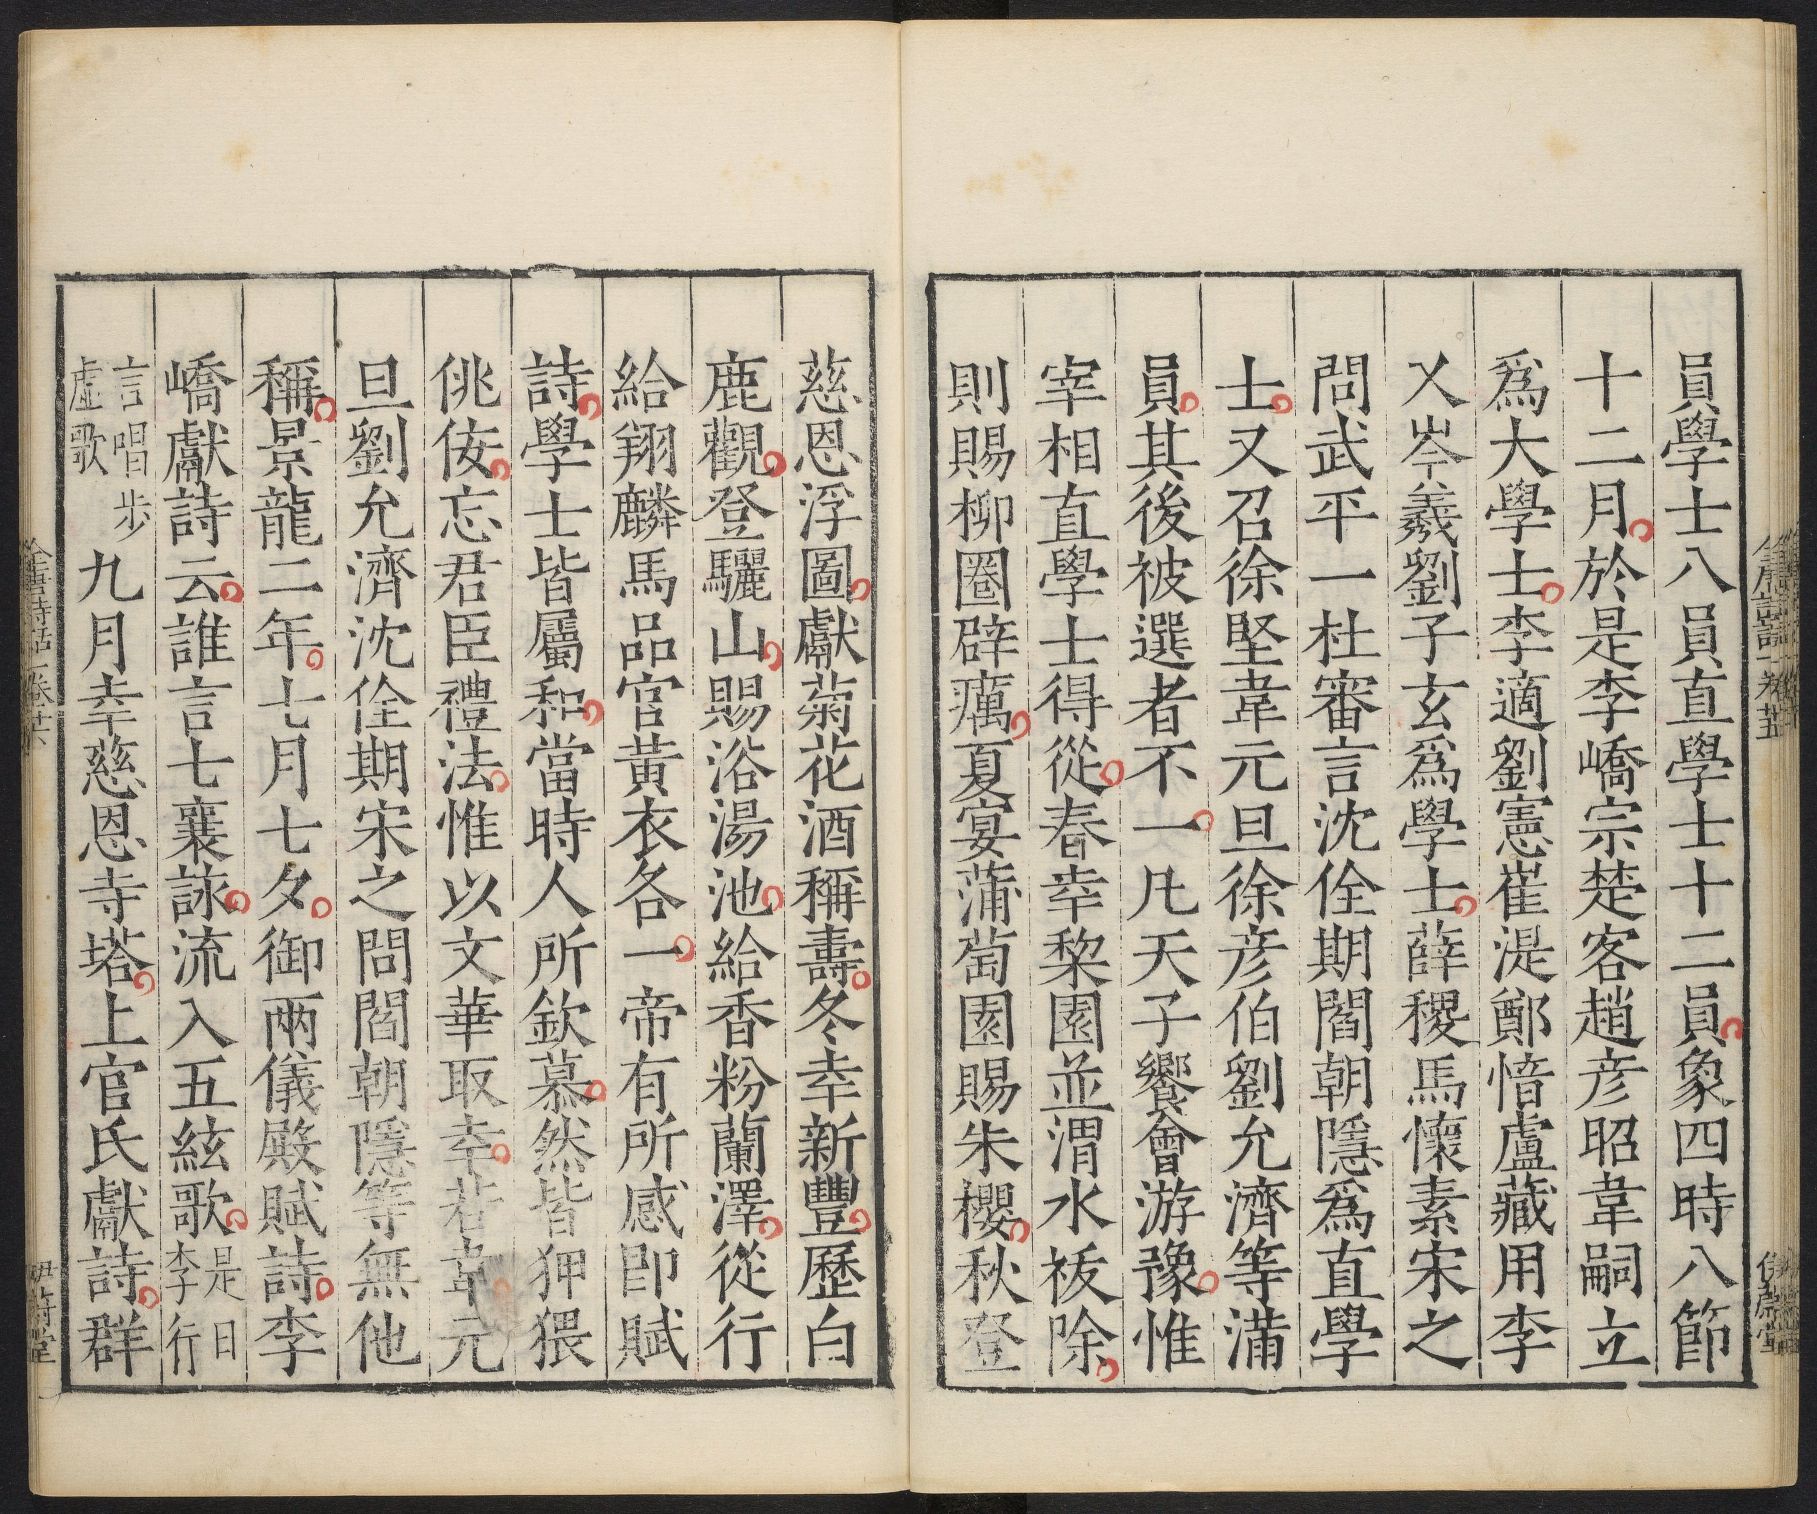 員學士八員直學士十二員象四時八節
十二月於是李嶠宗楚客趙彥昭韋嗣立
爲大學士李適劉憲崔湜鄭愔盧藏用李
乂岑羲劉子玄爲學士薛稷馬懷素宋之
問武平一杜審言沈佺期閻朝隱爲直學
士又召徐堅韋元旦徐彥伯劉允濟等滿
員其後被選者不一凡天子饗會游豫惟
宰相直學士得從春幸棃園並渭水祓除
則賜柳圈辟癘夏宴蒲萄園賜朱櫻秋登
慈恩浮圖獻菊花酒稱壽冬幸新豐歷白
鹿觀登驪山賜浴湯池給香粉蘭澤從行
給翔麟馬品官黃衣各一帝有所感卽賦
詩學士皆屬和當時人所欽慕然皆狎猥
佻侫忘君臣禮法惟以文華取幸若韋元
旦劉允濟沈佺期宋之問閻朝隱等無他
稱景龍二年七月七夕御兩儀殿賦詩李
嶠獻詩云誰言七襄詠流入五絃歌是日李行
言唱步虛歌九月幸慈恩寺塔上官氏獻詩群